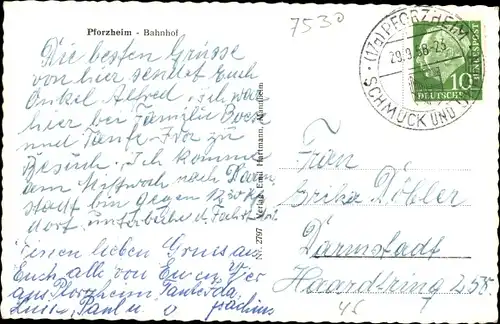 Pforzheim - Bahnhof
7530
Die besten Grüsse
von hier sendet Euch
Onkel Alfred, ich war
hier bei Familie Bock
und Tante
Besuch. Ich komme
am Mittwoch nach Darm-
stadt bin gegen 12.30
dort. unterbreche d. Fahrt
lieben Gruss an
Euch alle von
aus Pforzheim Tante
Paul u. Joachim
Nr. 2797 Verlag Emil Hartmann, Mannheim
(17a) PFORZHEIM
29.9.58-23
SCHMUCK UND
DEUTSCHE
BUNDESPOST
10
Frau
Erika Döbler
Darmstadt
Haardtring 258